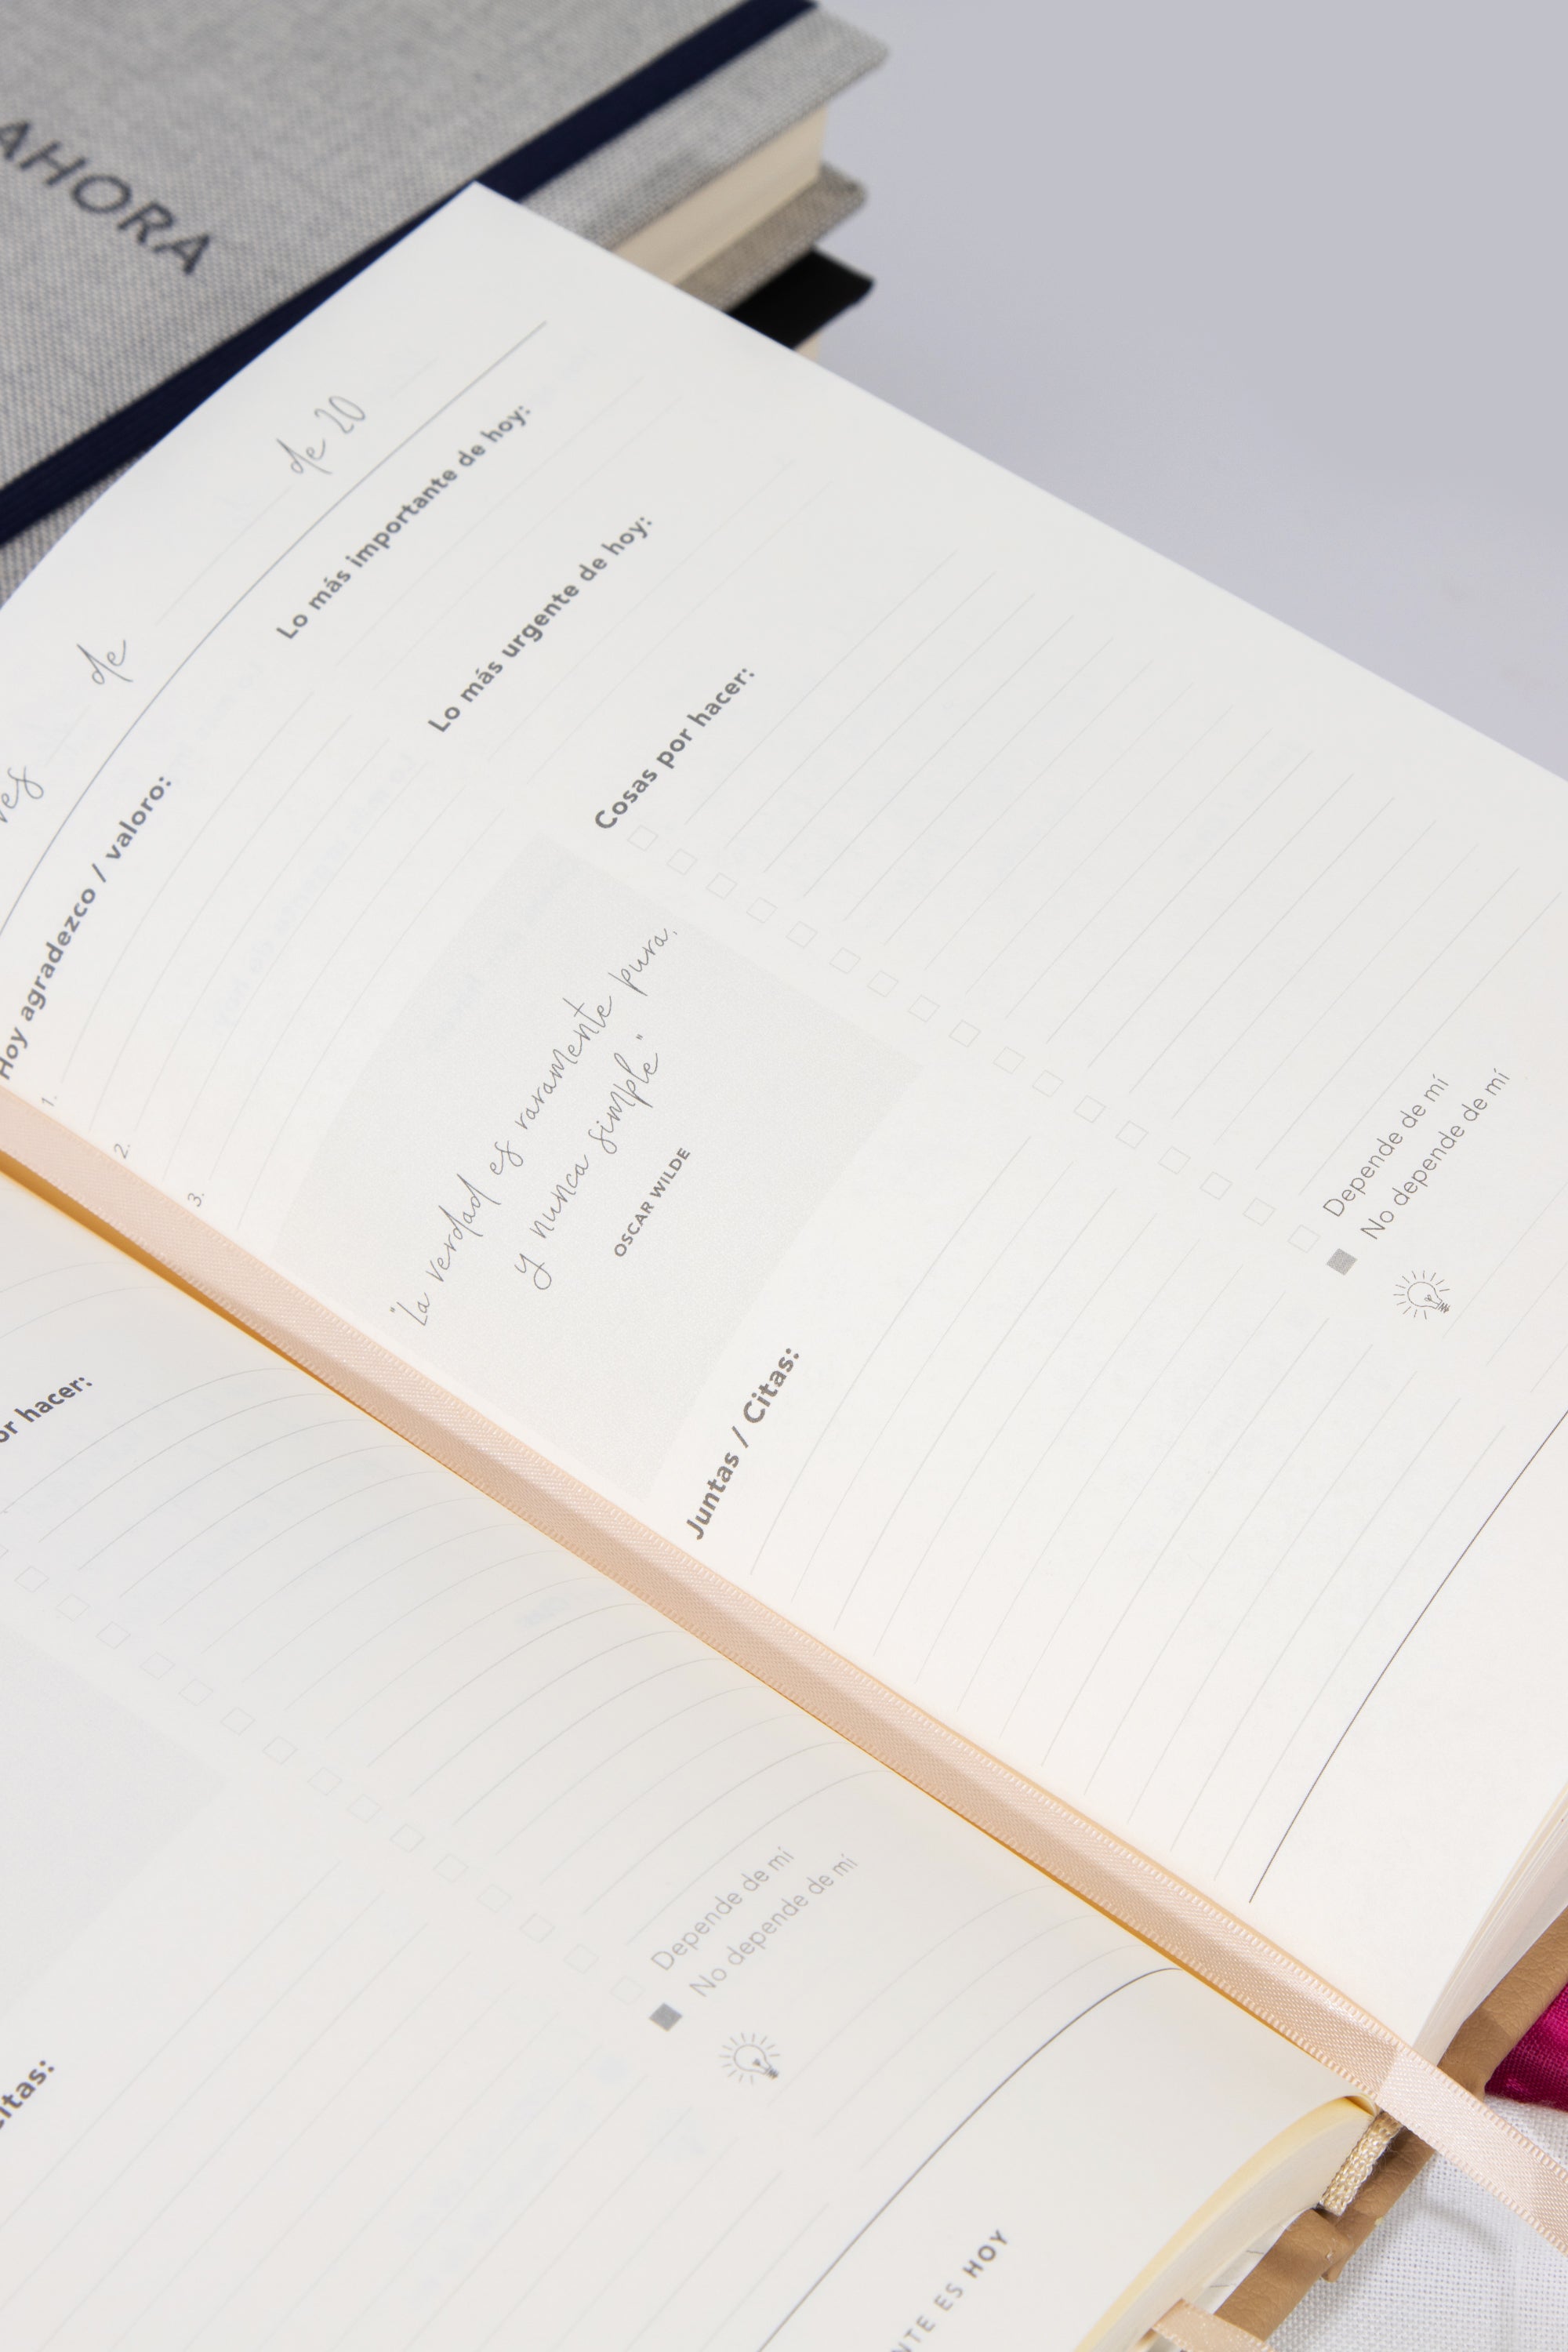 AHORA
de
de 20
Hoy agradezco / valoro:
1.
2.
3.
Lo más importante de hoy:
Lo más urgente de hoy:
"La verdad es raramente pura,
y nunca simple"
OSCAR WILDE
Cosas por hacer:
Depende de mí
No depende de mí
Juntas / Citas:
hacer:
Depende de mí
No depende de mí
ES HOY